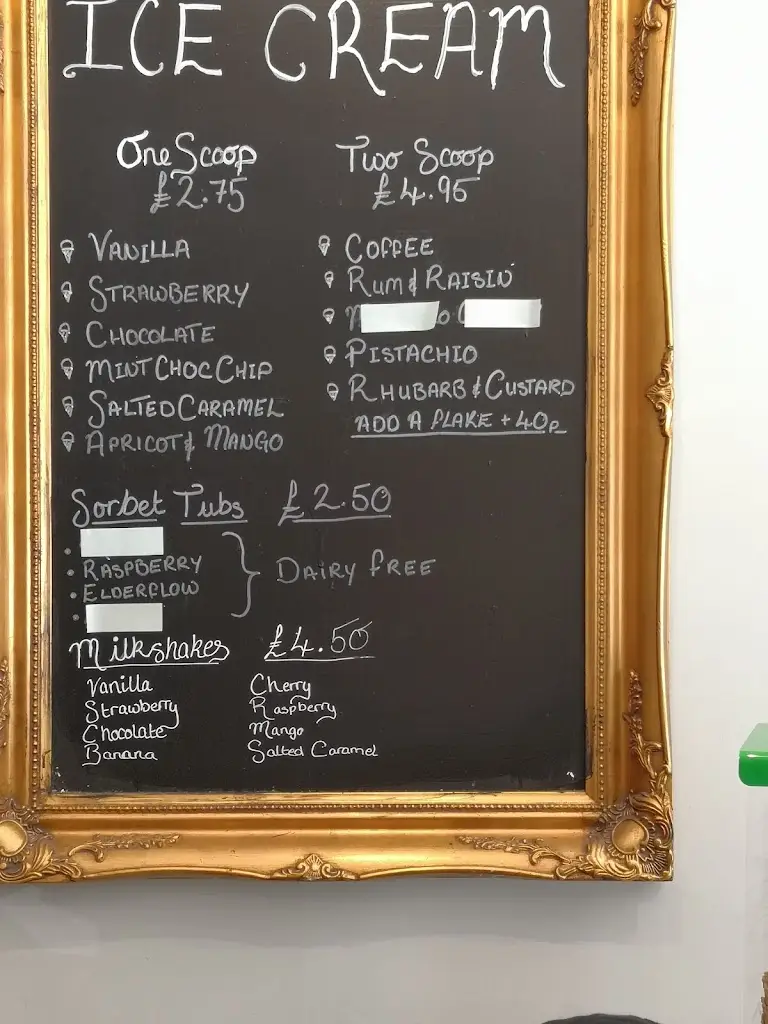 ICE CREAM
One Scoop
£2.75
VANILLA
STRAWBERRY
CHOCOLATE
MINT CHOC CHIP
SALTED CARAMEL
APRICOT & MANGO
Two Scoop
£4.95
COFFEE
RUM & RAISIN
PISTACHIO
RHUBARB & CUSTARD
ADD A FLAKE + 40p
Sorbet Tubs £2.50
RASPBERRY
ELDERFLOW
DAIRY FREE
Milkshakes £4.50
Vanilla
Strawberry
Chocolate
Banana
Cherry
Raspberry
Mango
Salted Caramel